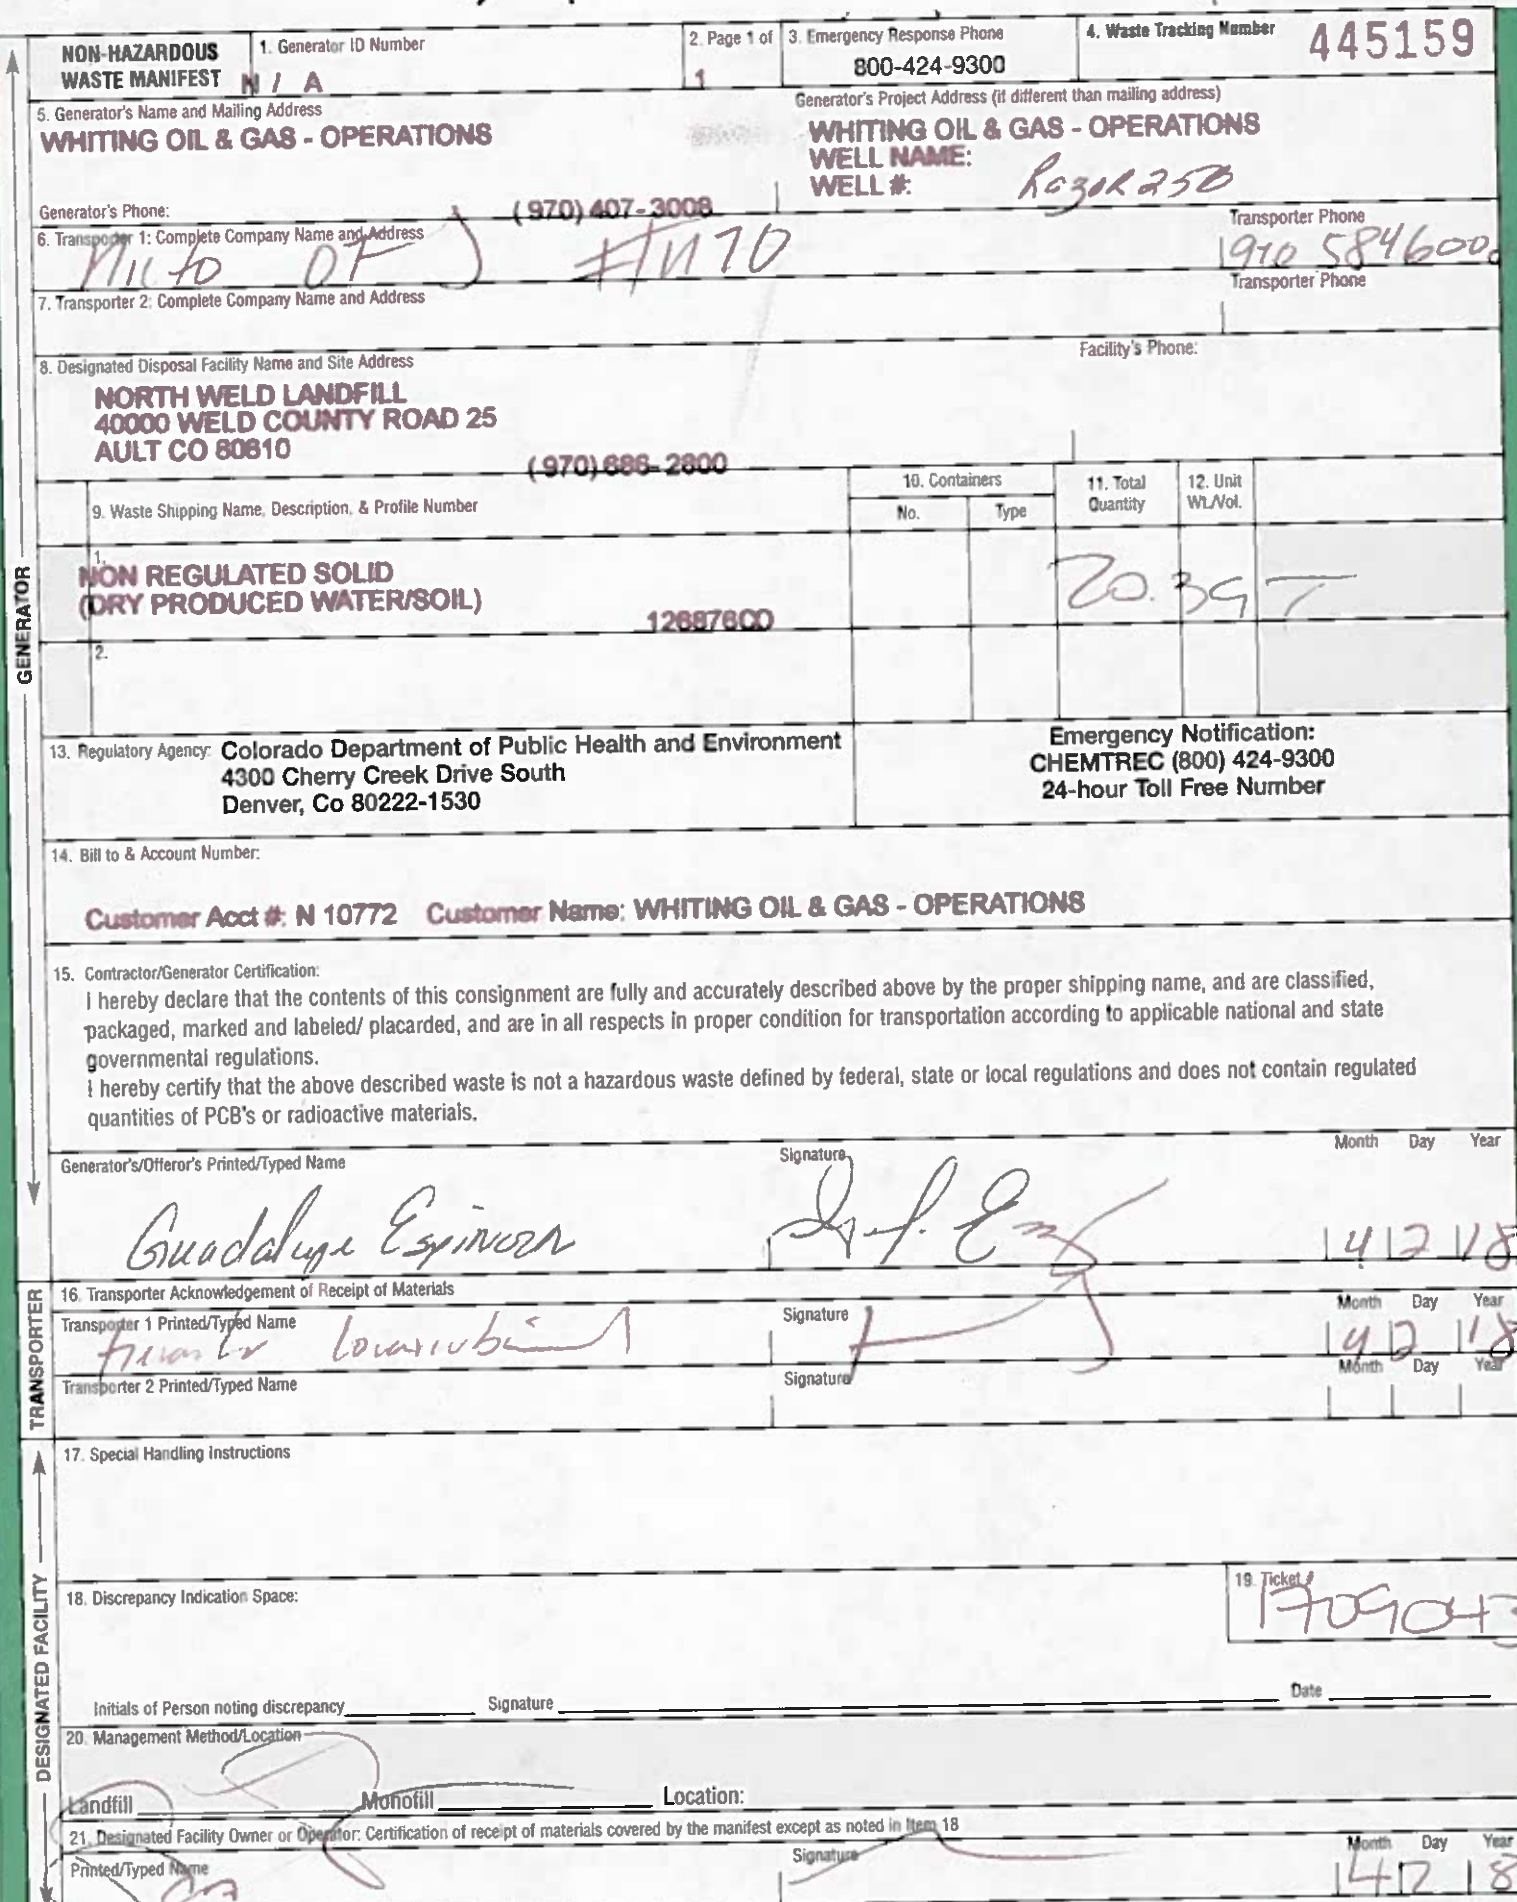 NON-HAZARDOUS
WASTE MANIFEST
1. Generator ID Number
N / A
2. Page 1 of
1
3. Emergency Response Phone
800-424-9300
4. Waste Tracking Number
445159
5. Generator's Name and Mailing Address
WHITING OIL & GAS - OPERATIONS
Generator's Project Address (if different than mailing address)
WHITING OIL & GAS - OPERATIONS
WELL NAME:
WELL #: Razor 25B
Generator's Phone: (970) 407-3008
6. Transporter 1: Complete Company Name and Address
Transporter Phone
970 584600
7. Transporter 2: Complete Company Name and Address
Transporter Phone
8. Designated Disposal Facility Name and Site Address
Facility's Phone:
NORTH WELD LANDFILL
40000 WELD COUNTY ROAD 25
AULT CO 80610
(970) 686-2800
9. Waste Shipping Name, Description, & Profile Number
10. Containers
No.
Type
11. Total
Quantity
12. Unit
Wt./Vol.
1.
NON REGULATED SOLID
(DRY PRODUCED WATER/SOIL)
12687600
20.39 T
2.
13. Regulatory Agency: Colorado Department of Public Health and Environment
4300 Cherry Creek Drive South
Denver, Co 80222-1530
Emergency Notification:
CHEMTREC (800) 424-9300
24-hour Toll Free Number
14. Bill to & Account Number:
Customer Acct #: N 10772 Customer Name: WHITING OIL & GAS - OPERATIONS
15. Contractor/Generator Certification:
I hereby declare that the contents of this consignment are fully and accurately described above by the proper shipping name, and are classified,
packaged, marked and labeled/ placarded, and are in all respects in proper condition for transportation according to applicable national and state
governmental regulations.
I hereby certify that the above described waste is not a hazardous waste defined by federal, state or local regulations and does not contain regulated
quantities of PCB's or radioactive materials.
Generator's/Offeror's Printed/Typed Name
Signature
Month Day Year
Guadalupe Espinoza
4 2 18
16. Transporter Acknowledgement of Receipt of Materials
Transporter 1 Printed/Typed Name
Signature
Month Day Year
4 2 18
Transporter 2 Printed/Typed Name
Signature
Month Day Year
17. Special Handling Instructions
18. Discrepancy Indication Space:
19. Ticket #
1709043
Initials of Person noting discrepancy
Signature
Date
20. Management Method/Location
Landfill
Monofill
Location:
21. Designated Facility Owner or Operator: Certification of receipt of materials covered by the manifest except as noted in Item 18
Printed/Typed Name
Signature
Month Day Year
4 2 18
GENERATOR
TRANSPORTER
DESIGNATED FACILITY